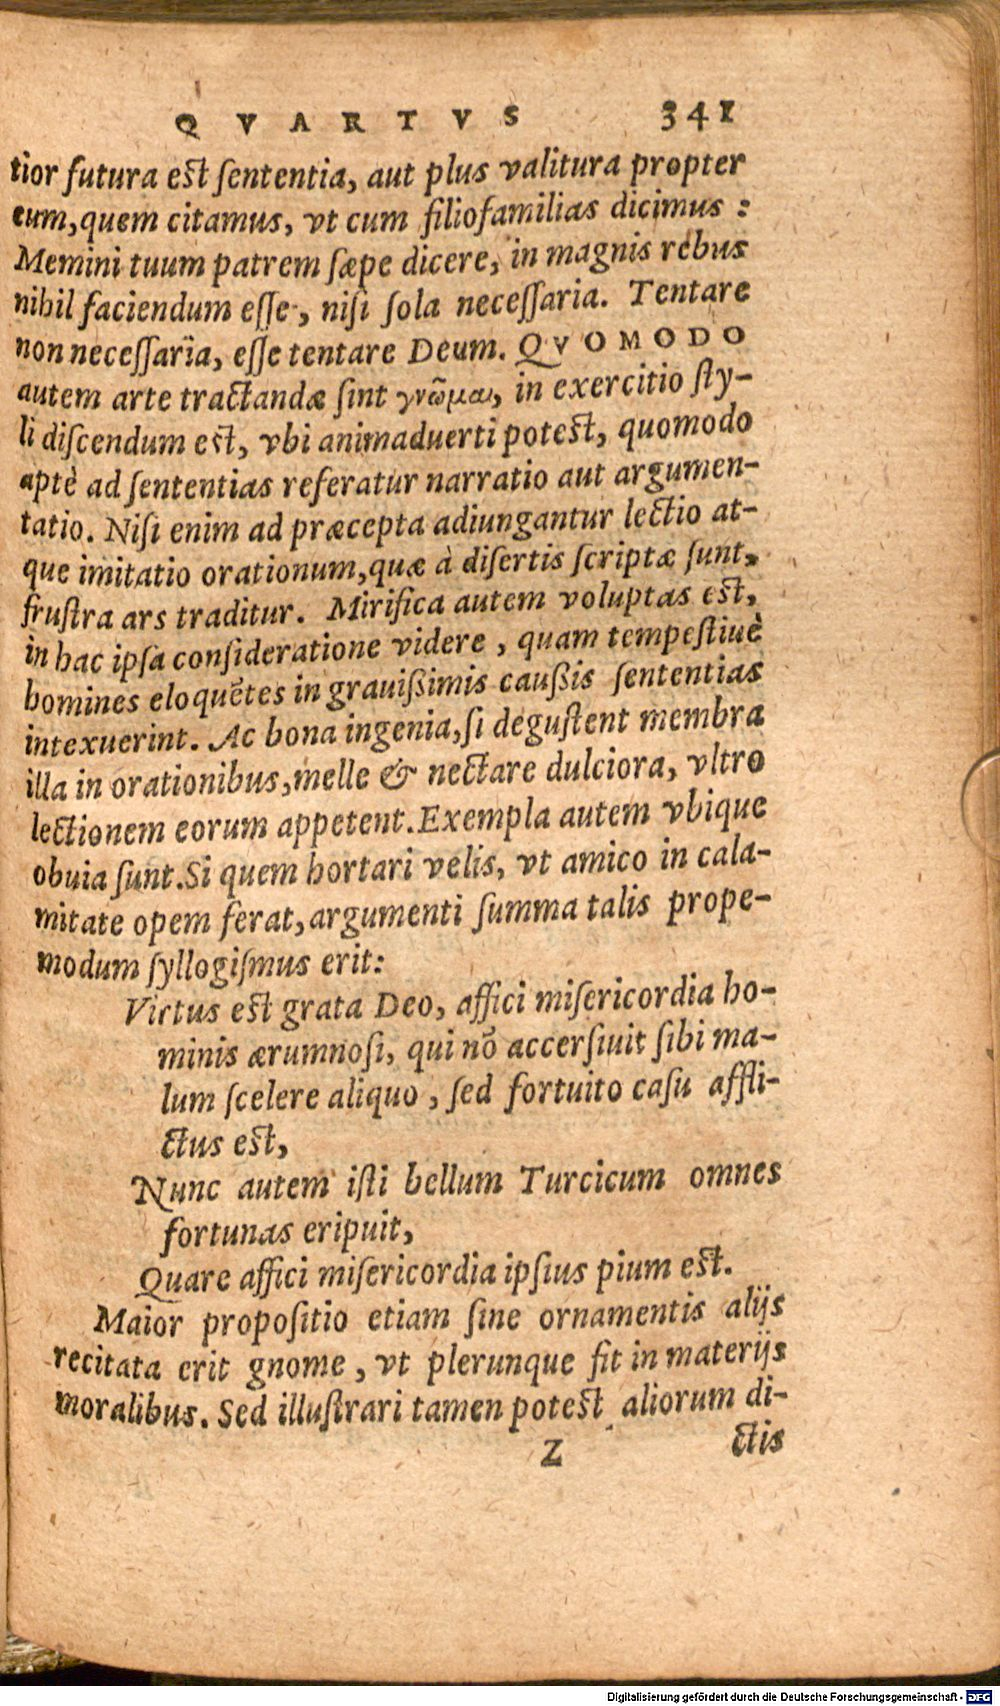 QVARTVS 341
tior futura est sententia, aut plus valitura propter
eum, quem citamus, vt cum filiofamilias dicimus :
Memini tuum patrem sæpe dicere, in magnis rebus
nihil faciendum esse, nisi sola necessaria. Tentare
non necessaria, esse tentare Deum. QVOMODO
autem arte tractandæ sint γνῶμαι, in exercitio sty-
li discendum est, vbi animaduerti potest, quomodo
aptè ad sententias referatur narratio aut argumen-
tatio. Nisi enim ad præcepta adiungantur lectio at-
que imitatio orationum, quæ à disertis scriptæ sunt,
frustra ars traditur. Mirifica autem voluptas est,
in hac ipsa consideratione videre, quam tempestiuè
homines eloquētes in grauißimis caußis sententias
intexuerint. Ac bona ingenia, si degustent membra
illa in orationibus, melle & nectare dulciora, vltro
lectionem eorum appetent. Exempla autem vbique
obuia sunt. Si quem hortari velis, vt amico in cala-
mitate opem ferat, argumenti summa talis prope-
modum syllogismus erit:
Virtus est grata Deo, affici misericordia ho-
minis ærumnosi, qui nō accersiuit sibi ma-
lum scelere aliquo, sed fortuito casu affli-
ctus est,
Nunc autem isti bellum Turcicum omnes
fortunas eripuit,
Quare affici misericordia ipsius pium est.
Maior propositio etiam sine ornamentis alijs
recitata erit gnome, vt plerunque fit in materijs
moralibus. Sed illustrari tamen potest aliorum di-
Z ctis
Digitalisierung gefördert durch die Deutsche Forschungsgemeinschaft - DFG